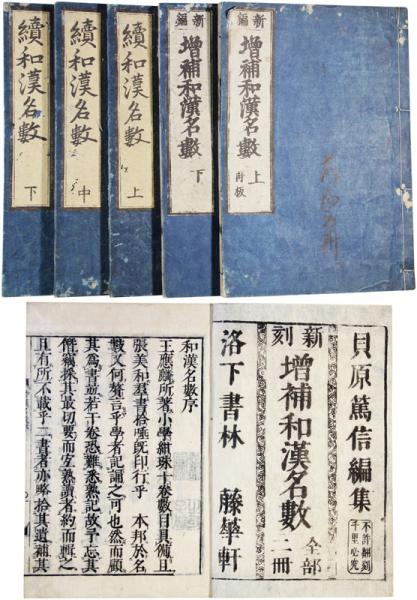 新編
增補和漢名數 上
再板
新編
增補和漢名數 下
續和漢名數 上
續和漢名數 中
續和漢名數 下
貝原篤信編集
不許翻刻
千里必究
新刻
增補和漢名數 全部二冊
洛下書林 藤華軒
和漢名數序
王應麟所著小學紺珠十卷數目具備且
張美和羣書拾唾既印行乎 本邦於名
數又何贅言乎學者記誦之可也然而顧
其爲書並若干卷恐難悉熟記故予忘其
僭竊探其最切要而 熟讀者約而輯之
且有所不載乎二書者亦略拾其遺補其